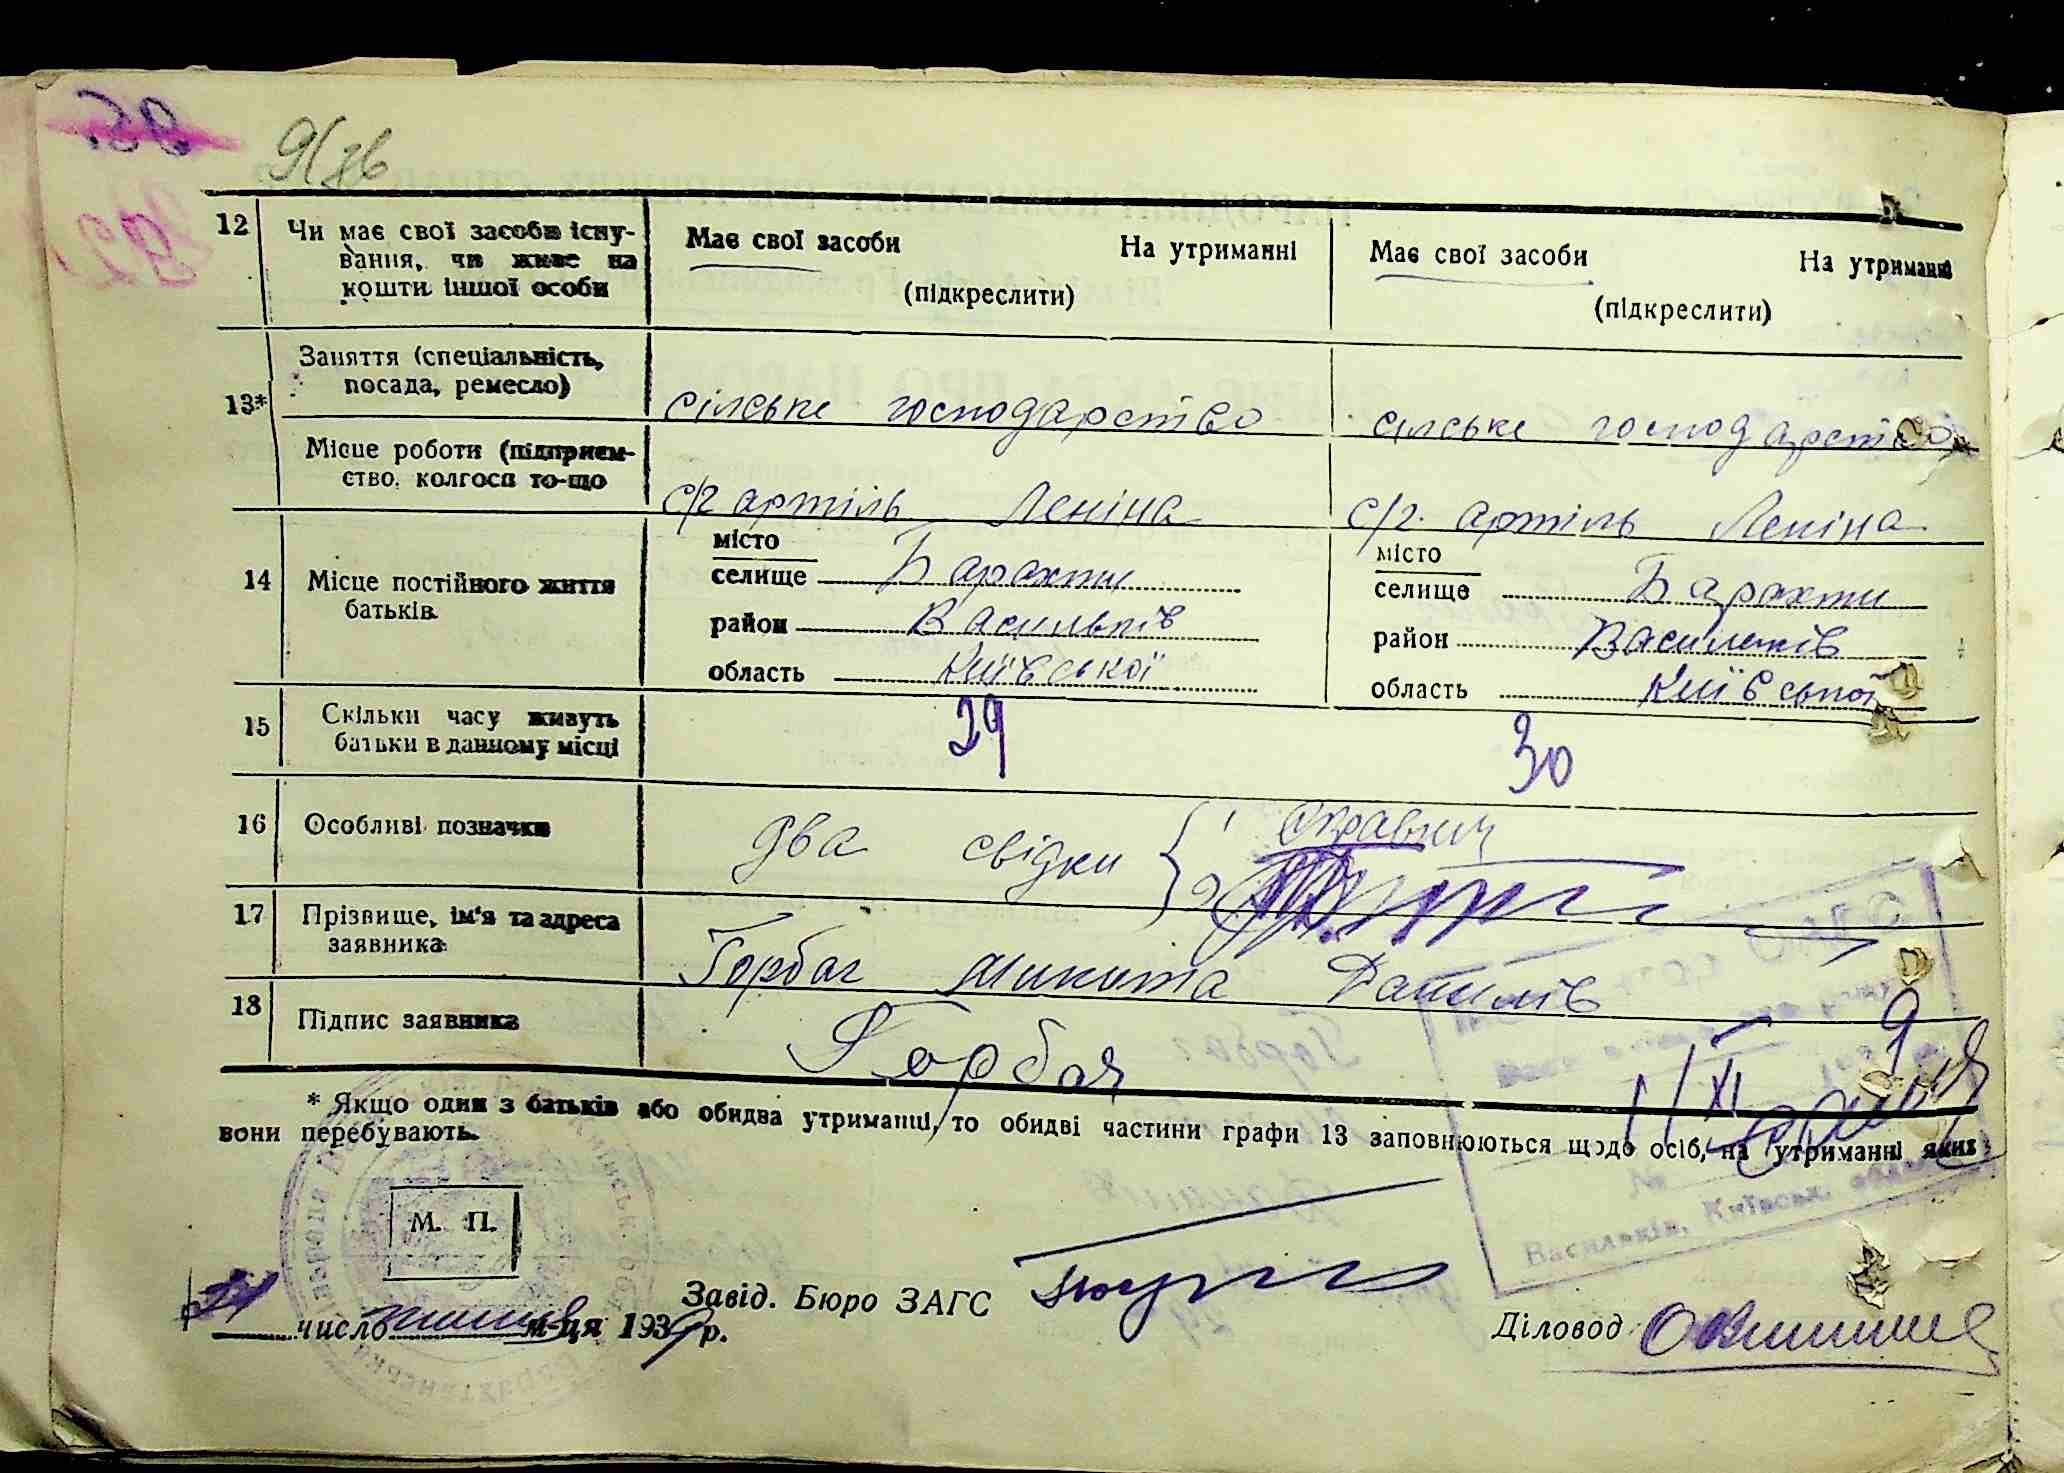 91 зв
12 Чи має свої засоби існу- Має свої засоби На утриманні Має свої засоби На утриманні
вання, чи живе на
кошти іншої особи (підкреслити) (підкреслити)
Заняття (спеціальність,
посада, ремесло) сілське господарство сілське господарство
13*
Місце роботи (підприєм-
ство, колгосп то-що с/г артіль Леніна с/г. артіль Леніна
місто місто
14 Місце постійного життя селище Барахти селище Барахти
батьків район Васильків район Васильків
область Київської область Київської
15 Скільки часу живуть 29 30
батьки в данному місці
16 Особливі позначки два свідки { 1
2
17 Прізвище, ім'я та адреса
заявника Горбач Микита Данилів
18 Підпис заявника Горбач
* Якщо один з батьків або обидва утриманці, то обидві частини графи 13 заповнюються щодо осіб, на утриманні яких
вони перебувають.
М. П.
Васильків, Київськ.
Завід. Бюро ЗАГС
число м-ця 1939 р.
Діловод